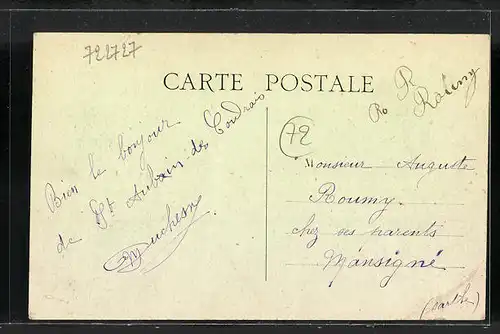 722727
CARTE POSTALE
R
Ro
Roumy
72
Bien le bonjour
de St Aubin des Coudrais
Duchesne
Monsieur Auguste
Roumy
chez ses parents
Mansigné
(Sarthe)